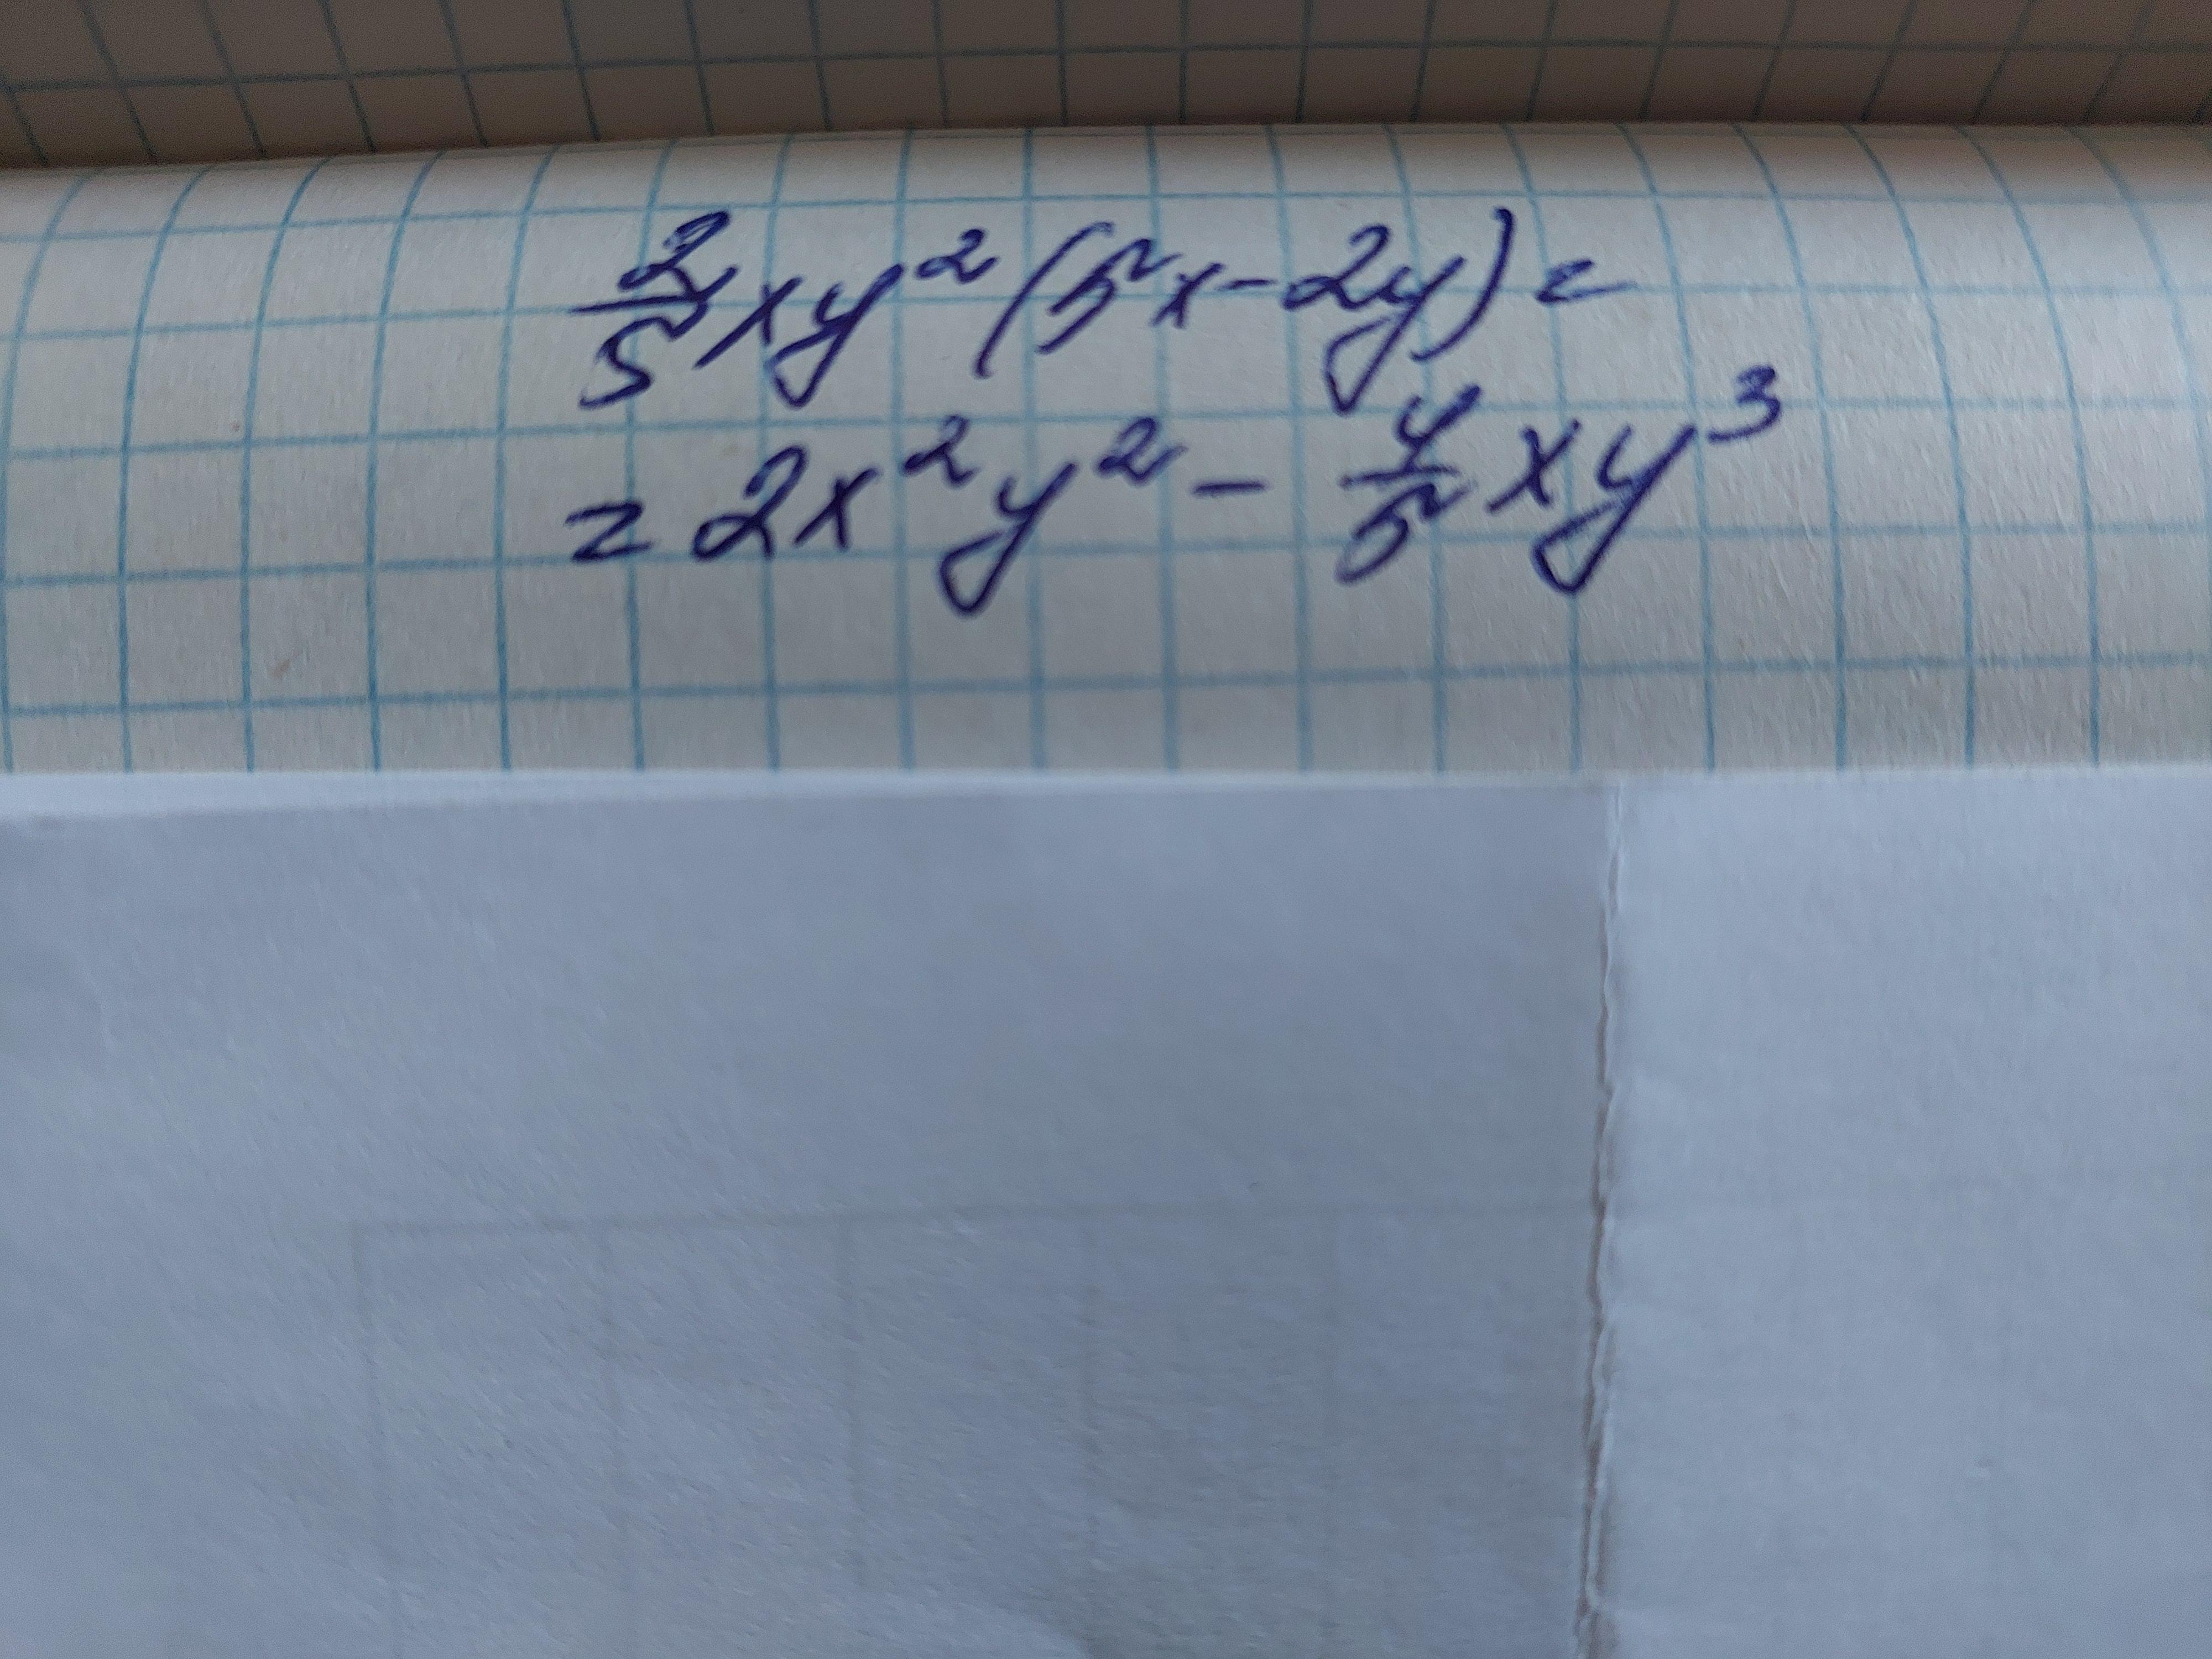 2/5 xy² (5x - 2y) =
= 2x²y² - 4/5 xy³